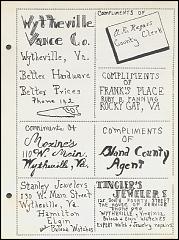 Wytheville
Vance Co.
Wytheville, Va.
Better Hardware
Better Prices
Phone 142
COMPLIMENTS OF
County Clerk
COMPLIMENTS
OF
FRANK'S PLACE
RUBY B. FANNING
ROCKY GAP, VA
Compliments of
Maxine's
110 W. Main
Wytheville, Va.
COMPLIMENTS
OF
Bland County
Agent
Stanley Jewelers
130 W. Main Street
Wytheville, Va.
Hamilton
Elgin
Bulova Watches
TINGLER'S
JEWELERS
SOUTH FOURTH STREET
THE HOUSE OF
WYTHEVILLE, Virginia
EXPERT Watch and Jewelry